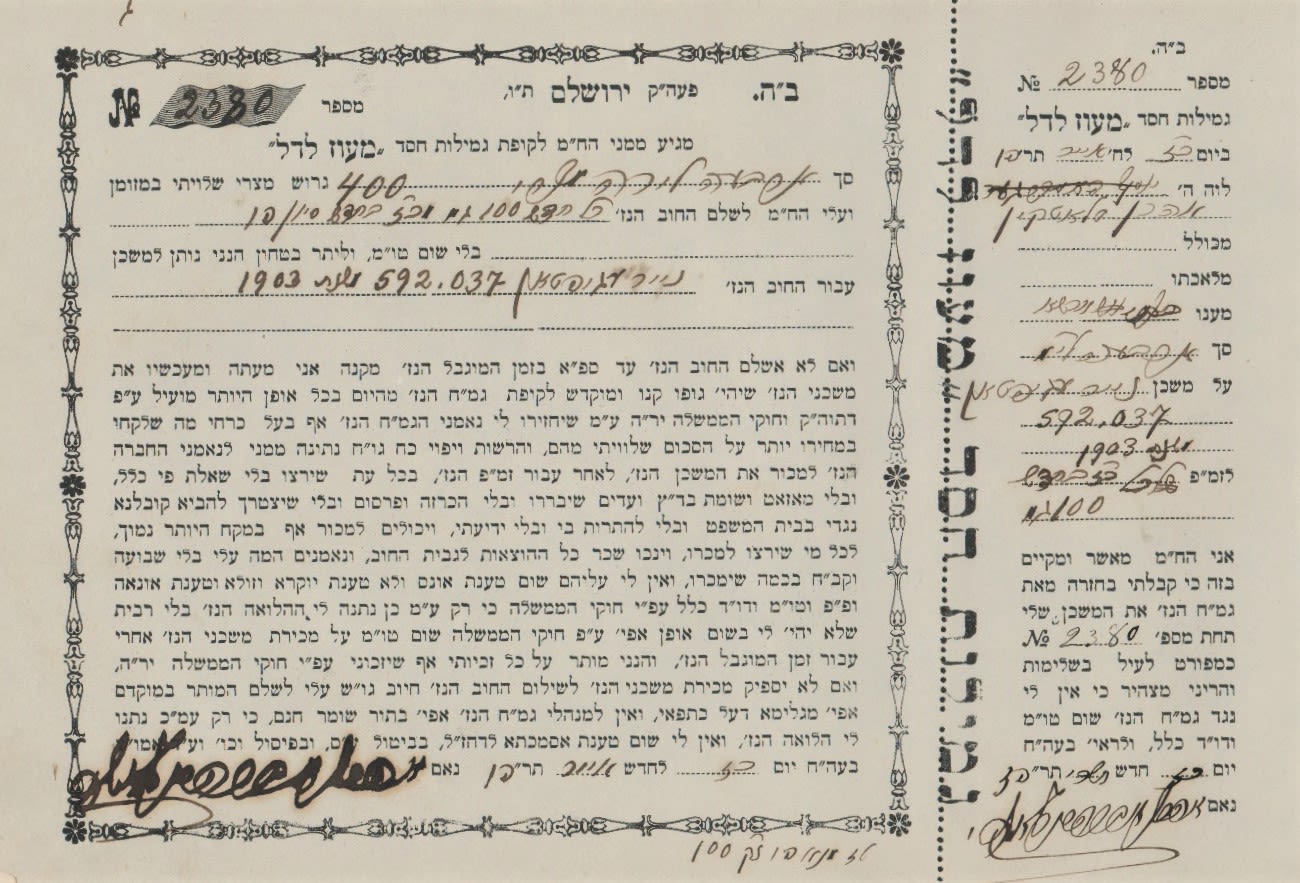 ב״ה. פעה״ק ירושלם ת״ו.
מספר 2380 №
מגיע ממני הח״מ לקופת גמילות חסד „מעוז לדל״
סך 400 גרוש מצרי שלויתי במזומן
ועלי הח״מ לשלם החוב הנז׳ כל חדש 100
בלי שום טו״מ, וליתר בטחין הנני נותן למשכן
עבור החוב הנז׳ 592.037 שנת 1903
ואם לא אשלם החוב הנז׳ עד ספ״א בזמן המוגבל הנז׳ מקנה אני מעתה ומעכשיו את
משכני הנז׳ שיהי׳ גופו קנו ומוקדש לקופת גמ״ח הנז׳ מהיום בכל אופן היותר מועיל ע״פ
דתוה״ק וחוקי הממשלה יר״ה ע״מ שיחזירו לי נאמני הגמ״ח הנז׳ אף בעל כרחי מה שלקחי
במחירו יותר על הסכום שלוויתי מהם, והרשות ויפוי כח גו״ח נתינה ממני לנאמני החברה
הנז׳ למכור את המשכן הנז׳, לאחר עבור זמ״פ הנז׳, בכל עת שירצו בלי שאלת פי כלל,
ובלי מאזאט ושומת בד״ץ ועדים שיבררו ובלי הכרזה ופרסום ובלי שיצטרך להביא קובלנא
נגדי בבית המשפט ובלי להתרות בי ובלי ידיעתי, ויכולים למכור אף במקח היותר נמוך,
לכל מי שירצו למכרו, וינכו שכר כל ההוצאות לגבית החוב, ונאמנים המה עלי בלי שבועה
וקב״ח בכמה שימכרו, ואין לי עליהם שום טענת אונם ולא טענת יוקרא וזולא וטענת אונאה
ופ״פ וטו״מ ודו״ד כלל עפ״י חוקי הממשלה כי רק ע״מ כן נתנה לי ההלואה הנז׳ בלי רבית
שלא יהי׳ לי בשום אופן אפי׳ ע״פ חוקי הממשלה שום טו״מ על מכירת משכני הנז׳ אחרי
עבור זמן המוגבל הנז׳, והנני מותר על כל זכיותי אף שיזכוני עפ״י חוקי הממשלה יר״ה,
ואם לא יספיק מכירת משכני הנז׳ לשילום החוב הנז׳ חיוב גו״ש עלי לשלם המותר במוקדם
אפי׳ מגלימא דעל כתפאי, ואין למנהלי גמ״ח הנז׳ אפי׳ בתור שומר חנם, כי רק עמ״כ נתנו
לי הלואה הנז׳, ואין לי שום טענת אסמכתא לדהז״ל, בביטול ובפיסול וכו׳
בעה״ח יום כז לחדש אייר תר״פו נאם
100
גמילות חסד מעוז לדל
ב״ה.
מספר 2380 №
גמילות חסד „מעוז לדל״
ביום כז לח׳ אייר תר״פו
לזה ה׳
אהרן
מכולל
מלאכתו
מענו
סך
על משכן
592.037
שנת 1903
לזמ״פ
100
אני הח״מ מאשר ומקיים
בזה כי קבלתי בחזרה מאת
גמ״ח הנז׳ את המשכן שלי
תחת מספ׳ 2380 №
כמפורט לעיל בשלימות
והריני מצהיר כי אין לי
נגד גמ״ח הנז׳ שום טו״מ
ודו״ד כלל, ולראי׳ בעה״ח
יום כז חדש תשרי תר״פז
נאם